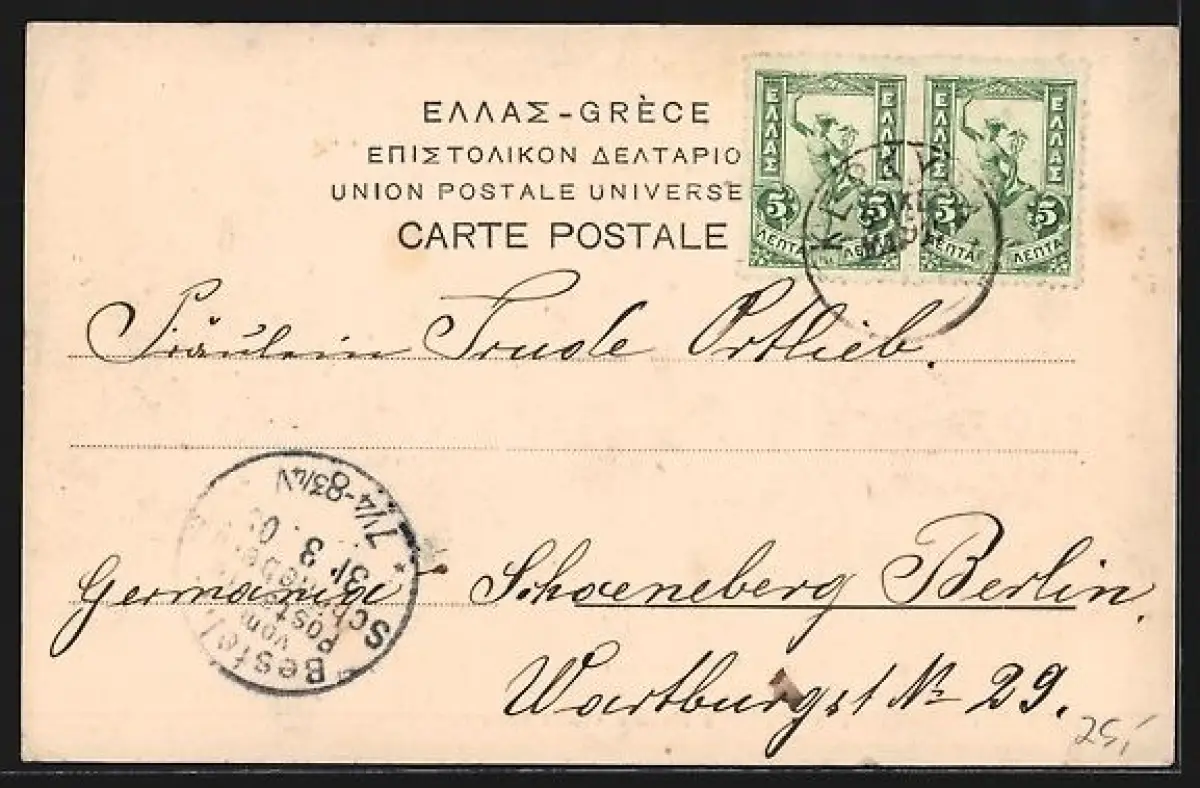 ΕΛΛΑΣ - GRÈCE
ΕΠΙΣΤΟΛΙΚΟΝ ΔΕΛΤΑΡΙΟ
UNION POSTALE UNIVERSE
CARTE POSTALE
ΕΛΛΑΣ ΕΛΛΑΣ
5 5
ΛΕΠΤΑ ΛΕΠΤΑ
ΕΛΛΑΣ ΕΛΛΑΣ
5 5
ΛΕΠΤΑ ΛΕΠΤΑ
Fräulein Trude Ortlieb.
Bestellt
vom
Post
31 3
7 1/4-8 3/4V
Germania Schoeneberg Berlin.
Wartburgst No 29.
25,